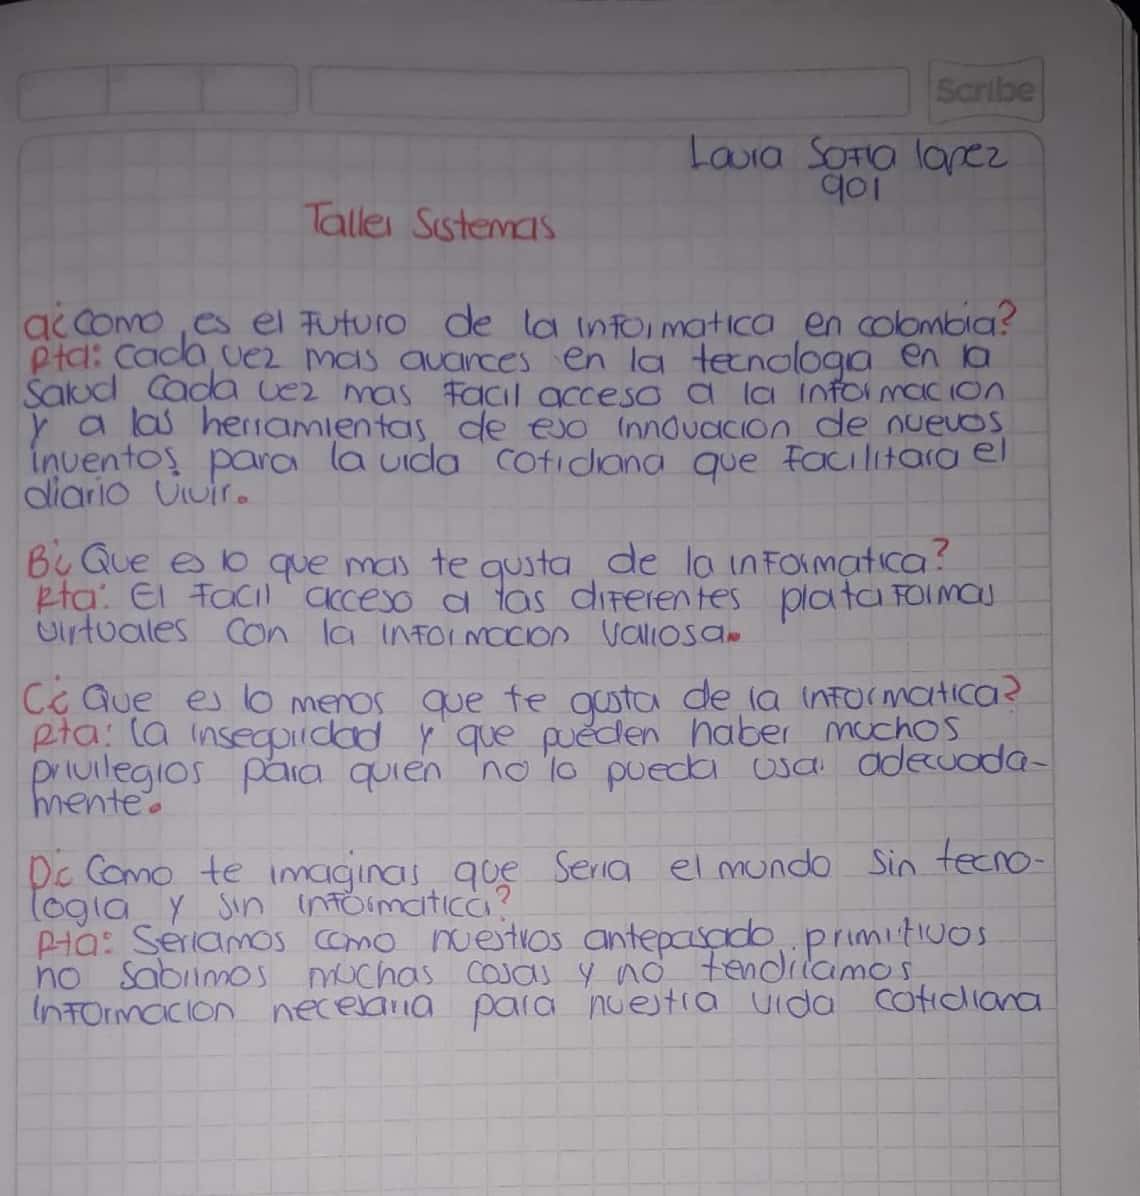 Scribe
Laura Sofia lopez
901
Taller Sistemas
a¿como es el Futuro de la informatica en colombia?
Rta: cada vez mas avances en la tecnologa en la
salud cada vez mas facil acceso a la informacion
y a las herramientas de eso innovacion de nuevos
inventos para la vida cotidiana que facilitara el
diario vivir.
B¿ Que es lo que mas te gusta de la informatica?
Rta: El facil acceso a las diferentes plataformas
virtuales con la informacion valiosa.
C¿ Que es lo menos que te gusta de la informatica?
Rta: la inseguridad y que pueden haber muchos
privilegios para quien no lo pueda usar adecuada-
mente.
D¿ Como te imaginas que seria el mundo sin tecno-
logia y sin informatica?
Rta: Seriamos como nuestros antepasado primitivos
no sabrimos muchas cosas y no tendriamos
informacion necesaria para nuestra vida cotidiana